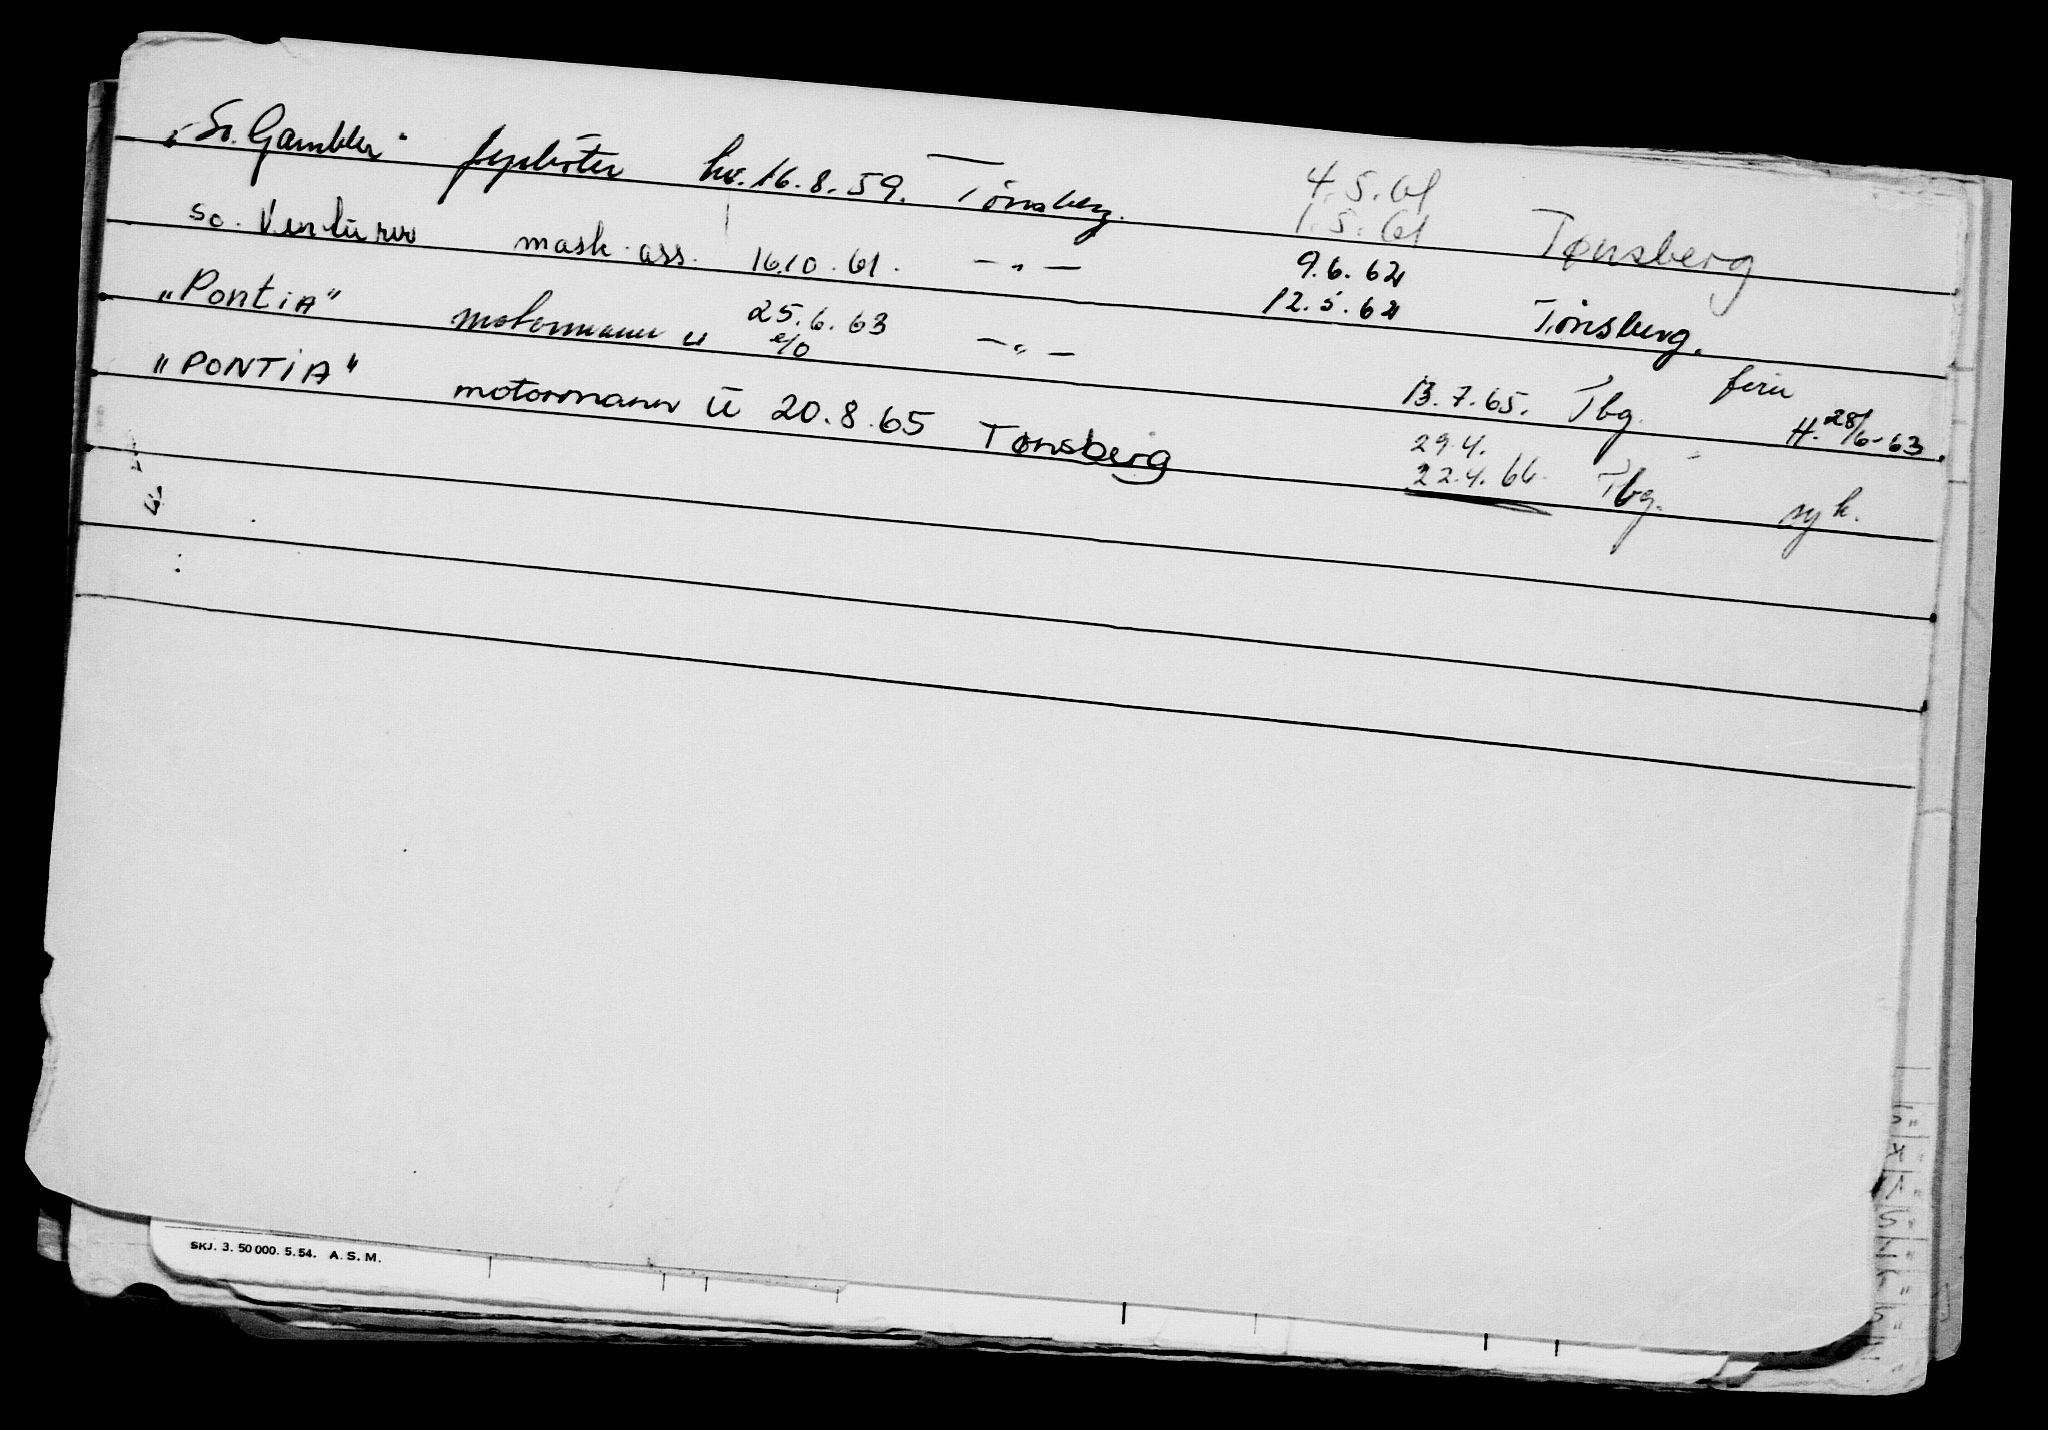 "So. Gambler" fyrbøter hv. 16.8.59. Tønsberg. 4.5.61
1.5.61 Tønsberg
So. Venturer mask. ass. 16.10.61. — " — 9.6.62
12.5.62 Tønsberg.
"Pontia" motormann u 25.6.63 — " — 13.7.65. Tbg. ferie H. 28/6-63.
e/o
"PONTIA" motormann U 20.8.65 Tønsberg 29.4.
22.4.66. Tbg. syk.
SKJ. 3. 50 000. 5. 54. A. S. M.